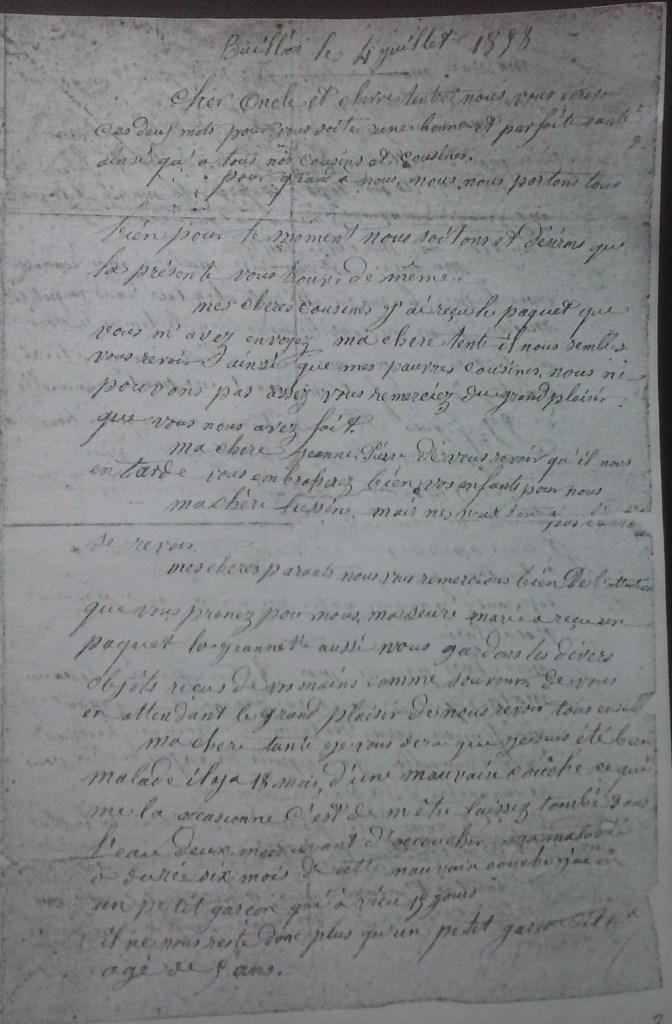 le 4 juillet 1898
Cher Oncle et cherre tente nous vous
Ces deux mots pour vous soiter une bonne et parfaite santé
ainsi qu'a tous nos cousins et cousines.
pour quand a nous, nous nous portons tous
bien pour le moment nous soitons et désirons que
la présente vous trouve de même.
mes cheres cousines j'ai reçu le paquet que
vous m'avez envoyez ma chere tente il nous semble
vous revoir ainsi que mes pauvres cousines, nous ne
pouvons pas assez vous remerciez du grand plaisir
que vous nous avez fait.
ma chere jeanne Pierre de vous revoir qu'il nous
en tarde vous embrassez bien vos enfants pour nous
ma chère mais
se revoir
mes cheres parents nous vous remercions bien De
que vous prenez pour nous, ma seure marie a reçu un
paquet la jeannette aussi nous gardons les divers
objets reçus de vos mains comme souvenir de vous
en attendant le grand plaisir de nous revoir tous
ma chere tante je vous dirai que je suis été bien
malade il y a 18 mois, d'une mauvaise couche ce qui
me la ocasionné c'est de m'être laissez tombé dans
l'eau deux mois avant d'accoucher, ma maladie
a durée six mois de cette mauvaise couche j'ai eu
un petit garçon qui a vécu 15 jours
il ne nous reste donc plus qu'un petit garçon
agé de 5 ans.